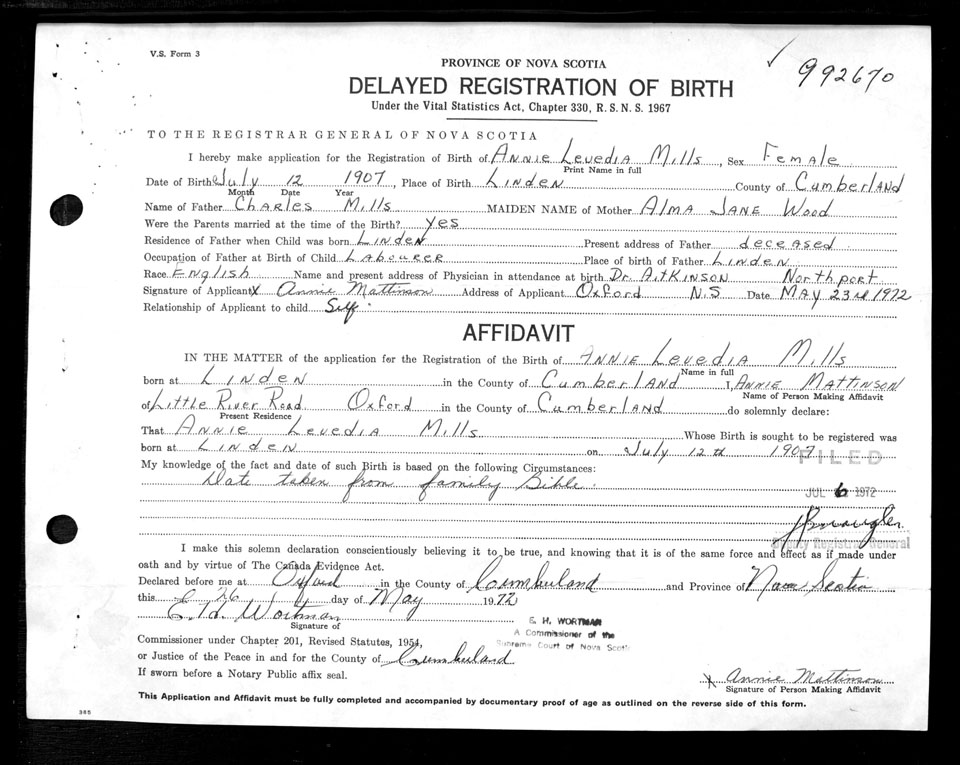 V.S. Form 3
992670
PROVINCE OF NOVA SCOTIA
DELAYED REGISTRATION OF BIRTH
Under the Vital Statistics Act, Chapter 330, R.S.N.S. 1967
TO THE REGISTRAR GENERAL OF NOVA SCOTIA
I hereby make application for the Registration of Birth of Annie Levedia Mills, Sex Female
Print Name in full
Date of Birth July 12 1907, Place of Birth Linden County of Cumberland
Month Date Year
Name of Father Charles Mills MAIDEN NAME of Mother Alma Jane Wood
Were the Parents married at the time of the Birth? yes
Residence of Father when Child was born Linden Present address of Father deceased
Occupation of Father at Birth of Child Labourer Place of birth of Father Linden
Race English Name and present address of Physician in attendance at birth Dr. Atkinson Northport
Signature of Applicant X Annie Mattinson Address of Applicant Oxford N.S Date May 23rd 1972
Relationship of Applicant to child Self.
AFFIDAVIT
IN THE MATTER of the application for the Registration of the Birth of Annie Levedia Mills
Name in full
born at Linden in the County of Cumberland I, Annie Mattinson
Name of Person Making Affidavit
of Little River Road Oxford in the County of Cumberland do solemnly declare:
Present Residence
That Annie Levedia Mills Whose Birth is sought to be registered was
born at Linden on July 12th 1907
FILED
My knowledge of the fact and date of such Birth is based on the following Circumstances:
Date taken from family Bible.
JUL 6 1972
Deputy Registrar General
I make this solemn declaration conscientiously believing it to be true, and knowing that it is of the same force and effect as if made under
oath and by virtue of The Canada Evidence Act.
Declared before me at Oxford in the County of Cumberland and Province of Nova Scotia
this 26 day of May 1972
E. H. Wortman
Signature of
E. H. WORTMAN
A Commissioner of the
Supreme Court of Nova Scotia
Commissioner under Chapter 201, Revised Statutes, 1954,
or Justice of the Peace in and for the County of Cumberland
If sworn before a Notary Public affix seal.
X Annie Mattinson
Signature of Person Making Affidavit
This Application and Affidavit must be fully completed and accompanied by documentary proof of age as outlined on the reverse side of this form.